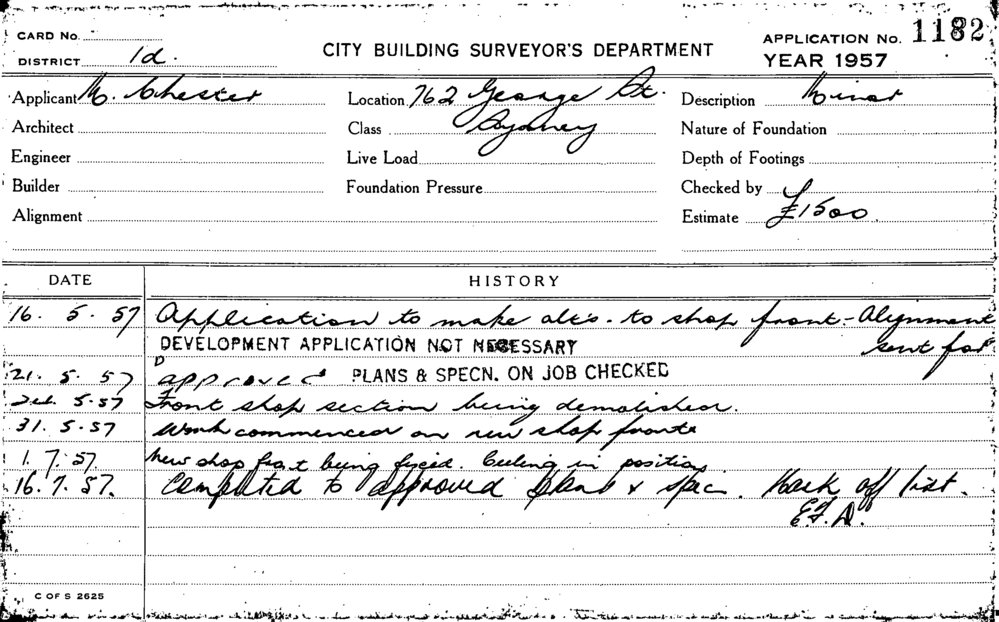 CARD No.
DISTRICT 1d.
CITY BUILDING SURVEYOR'S DEPARTMENT
APPLICATION No. 1182
YEAR 1957
Applicant M. Chester
Location 762 George St.
Description Minor
Architect
Class Sydney
Nature of Foundation
Engineer
Live Load
Depth of Footings
Builder
Foundation Pressure
Checked by
Alignment
Estimate £1500
DATE HISTORY
16. 5. 57 Application to make alts. to shop front - Alignment
sent for
DEVELOPMENT APPLICATION NOT NECESSARY
21. 5. 57 approved PLANS & SPECN. ON JOB CHECKED
5.57 Front shop section being demolished.
31. 5.57 Work commenced on new shop front
1. 7. 57 New shop front being fixed. Ceiling in position
16. 7. 57. Completed to approved plans & spec. Mark off list.
C OF S 2625